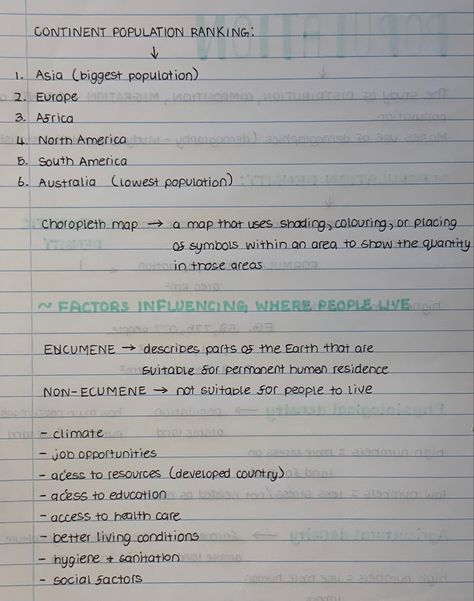 CONTINENT POPULATION RANKING:
↓
1. Asia (biggest population)
2. Europe
3. Africa
4. North America
5. South America
6. Australia (lowest population)
Choropleth map → a map that uses shading, colouring, or placing
of symbols within an area to show the quantity
in those areas
~ FACTORS INFLUENCING WHERE PEOPLE LIVE
ENCUMENE → describes parts of the Earth that are
suitable for permanent human residence
NON-ECUMENE → not suitable for people to live
- climate
- job opportunities
- acess to resources (developed country)
- acess to education
- access to health care
- better living conditions
- hygiene + sanitation
- social factors